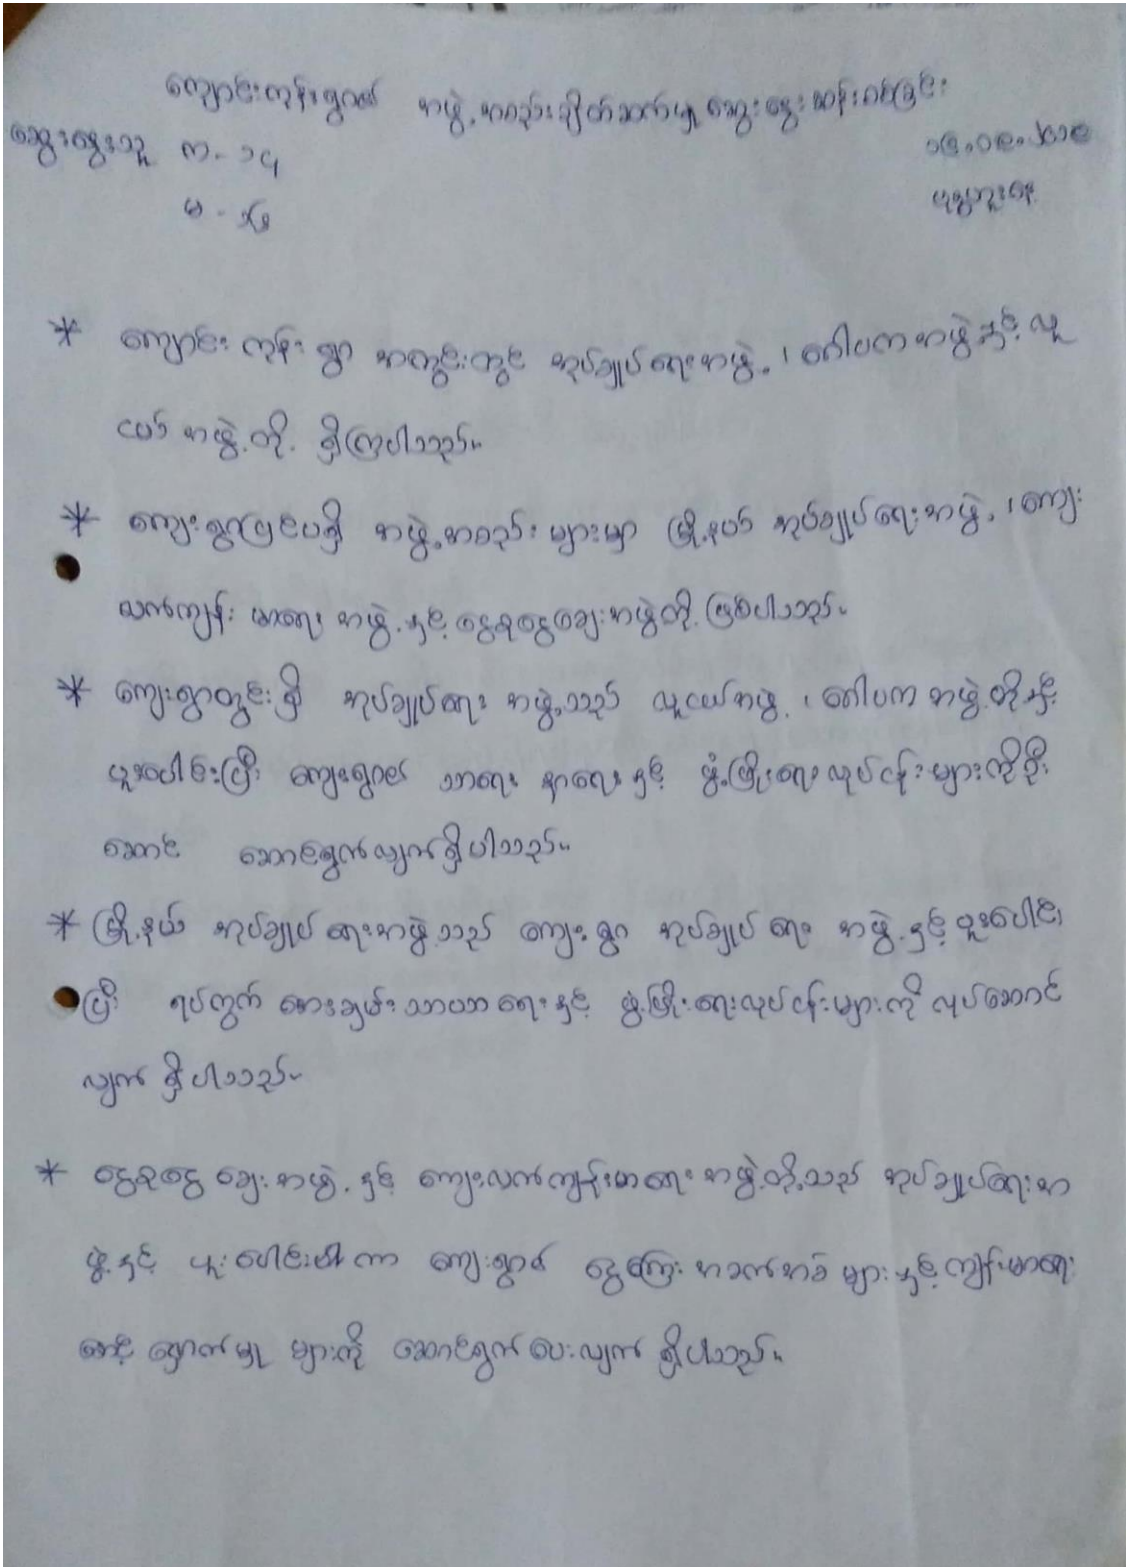 ကျောင်းကုန်းရွာ၏ အဖွဲ့အစည်းချိတ်ဆက်မှု ဆွေးနွေးဆန်းစစ်ခြင်း
ဆွေးနွေးသူ ကျ - ၁၄ ၁၆.၁၀.၂၀၁၉
မ - ၁၆ ဗုဒ္ဓဟူးနေ့
* ကျောင်းကုန်းရွာ အတွင်းတွင် အုပ်ချုပ်ရေးအဖွဲ့၊ ဂေါပကအဖွဲ့နှင့် လူ
ငယ်အဖွဲ့တို့ ရှိကြပါသည်။
* ကျေးရွာပြင်ပရှိ အဖွဲ့အစည်းများမှာ မြို့နယ် အုပ်ချုပ်ရေးအဖွဲ့၊ ကျေး
လက်ကျန်းမာရေး အဖွဲ့နှင့် ငွေစုငွေချေးအဖွဲ့တို့ ဖြစ်ပါသည်။
* ကျေးရွာတွင်းရှိ အုပ်ချုပ်ရေး အဖွဲ့သည် လူငယ်အဖွဲ့၊ ဂေါပက အဖွဲ့တို့နှင့်
ပူးပေါင်းပြီး ကျေးရွာ၏ သာရေး နာရေးနှင့် ဖွံ့ဖြိုးရေးလုပ်ငန်းများကိုဦး
ဆောင် ဆောင်ရွက်လျက်ရှိပါသည်။
* မြို့နယ် အုပ်ချုပ်ရေးအဖွဲ့သည် ကျေးရွာ အုပ်ချုပ်ရေး အဖွဲ့နှင့် ပူးပေါင်း
ပြီး ရပ်ကွက် အေးချမ်းသာယာရေးနှင့် ဖွံ့ဖြိုးရေးလုပ်ငန်းများကို လုပ်ဆောင်
လျက် ရှိပါသည်။
* ငွေစုငွေ ချေးအဖွဲ့ နှင့် ကျေးလက်ကျန်းမာရေးအဖွဲ့တို့သည် အုပ်ချုပ်ရေးအ
ဖွဲ့နှင့် ပူးပေါင်းကာ ကျေးရွာ၏ ငွေကြေး အခက်အခဲများနှင့် ကျန်းမာရေး
စောင့်ရှောက်မှု များကို ဆောင်ရွက်ပေးလျက် ရှိပါသည်။